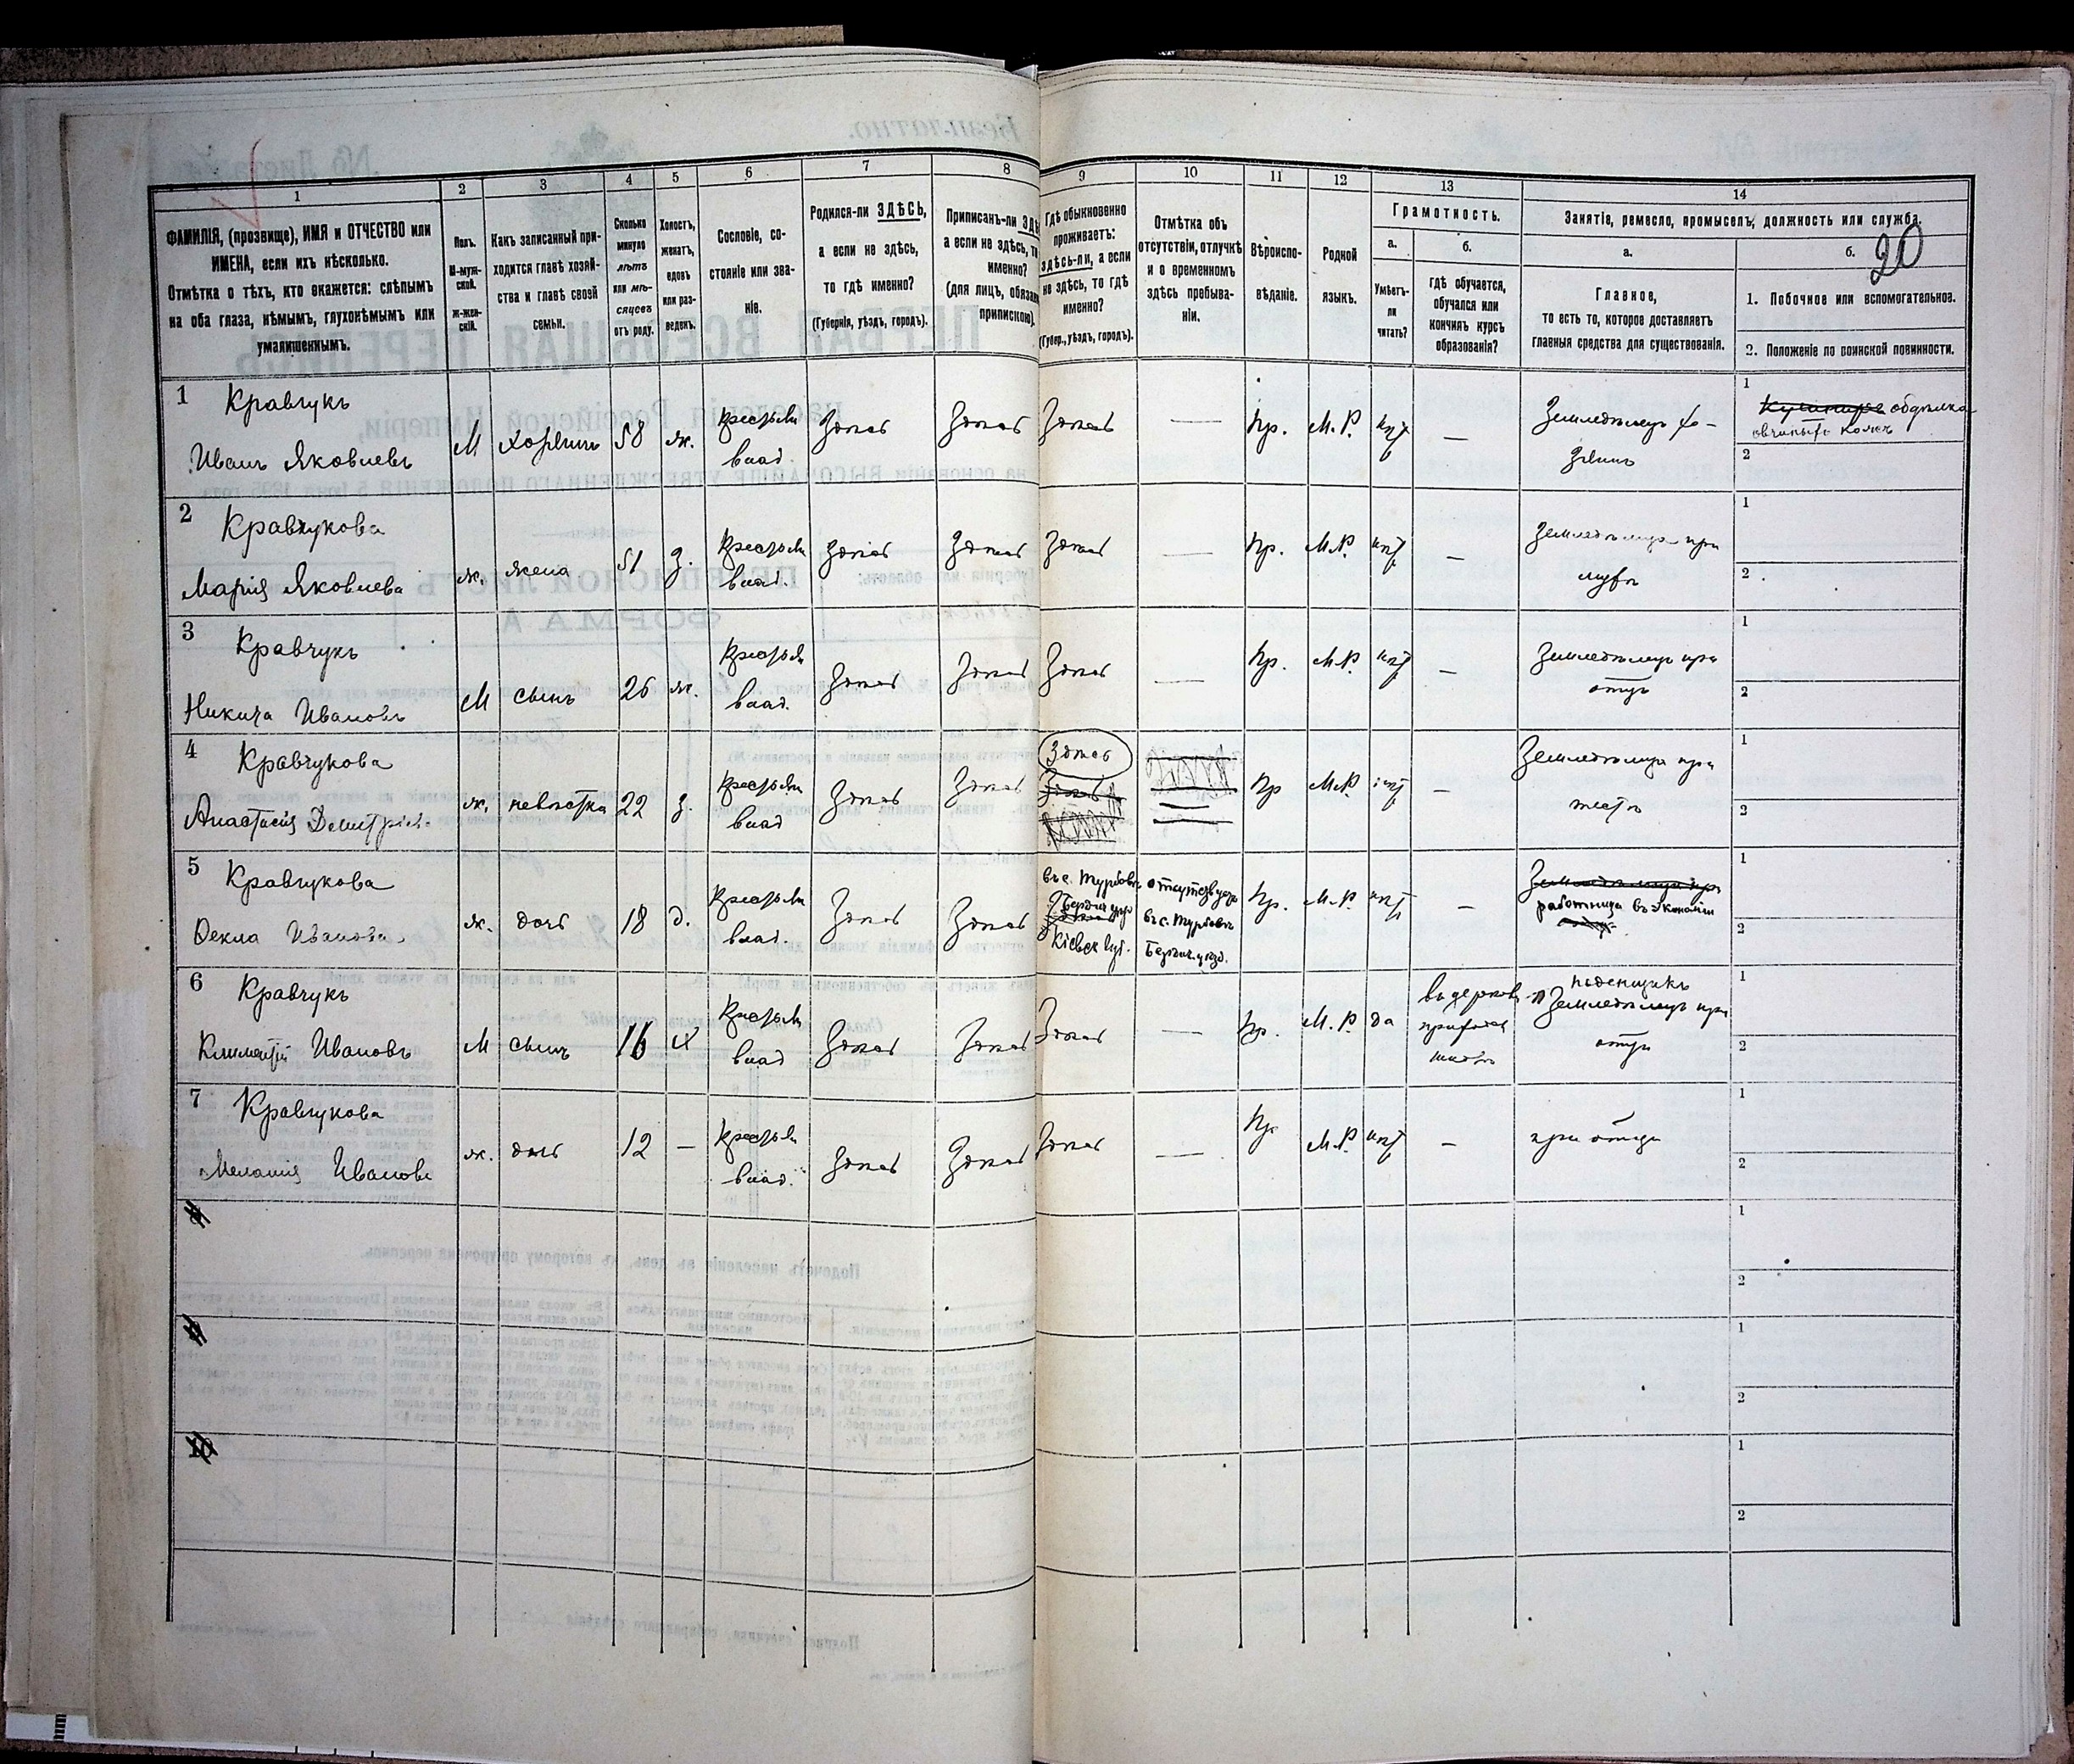 20
1 2 3 4 5 6 7 8 9 10 11 12 13 14
ФАМИЛІЯ, (прозвище), ИМЯ и ОТЧЕСТВО или
ИМЕНА, если ихъ нѣсколько.
Отмѣтка о тѣхъ, кто окажется: слѣпымъ
на оба глаза, нѣмымъ, глухонѣмымъ или
умалишеннымъ.
Полъ.
М-муж-
ской.
Ж-жен-
скій.
Какъ записанный при-
ходится главѣ хозяй-
ства и главѣ своей
семьи.
Сколько
минуло
лѣтъ
или мѣ-
сяцевъ
отъ роду.
Холостъ,
женатъ,
вдовъ
или раз-
веденъ.
Сословіе, со-
стояніе или зва-
ніе.
Родился-ли ЗДѢСЬ,
а если не здѣсь,
то гдѣ именно?
(Губернія, уѣздъ, городъ).
Приписанъ-ли
а если не здѣсь,
именно?
(для лицъ,
припискою)
Гдѣ обыкновенно
проживаетъ:
здѣсь-ли, а если
не здѣсь, то гдѣ
именно?
(Губер., уѣздъ, городъ).
Отмѣтка объ
отсутствіи, отлучкѣ
и о временномъ
здѣсь пребыва-
ніи.
Вѣроиспо-
вѣданіе.
Родной
языкъ.
Грамотность.
а.
Умѣетъ-
ли
читать?
б.
Гдѣ обучается,
обучался или
кончилъ курсъ
образованія?
Занятіе, ремесло, промыселъ, должность или служба.
а.
Главное,
то есть то, которое доставляетъ
главныя средства для существованія.
б.
1. Побочное или вспомогательное.
2. Положеніе по воинской повинности.
1 Кравчукъ
Иванъ Яковлевъ М хозяинъ 58 ж. Крестьян влад. Здѣсь Здѣсь Здѣсь — Пр. М.Р. нѣт — Земледѣлец хо-
зяинъ
1 обдѣлка
овчиныхъ кожъ
2
2 Кравчукова
Марія Яковлева ж. жена 51 з. Крестьян влад. Здѣсь Здѣсь Здѣсь — Пр. М.Р. нѣт — Земледѣлица при
мужѣ
1
2
3 Кравчукъ
Никита Ивановъ М сынъ 26 ж. Крестьян влад. Здѣсь Здѣсь Здѣсь — Пр. М.Р. нѣт — Земледѣлец при
отцѣ
1
2
4 Кравчукова
Анастасія Дмитріев. ж. невѣстка 22 з. Крестьян влад Здѣсь Здѣсь Здѣсь Пр М.Р. нѣт — Земледѣлица при
тестѣ
1
2
5 Кравчукова
Фекла Иванова ж. дочь 18 д. Крестьян влад. Здѣсь Здѣсь
въ с. Турбовѣ
Кіевск губ.
отсутствуетъ
въ с. Турбовѣ
Бердич. уѣзд.
Пр. М.Р. нѣт —
работница въ экономіи
1
2
6 Кравчукъ
Климентій Ивановъ М сынъ 16 х Крестьян влад Здѣсь Здѣсь Здѣсь — Пр. М.Р. да
въ церковно
приходск
школѣ
поденщикъ
Земледѣлец при
отцѣ
1
2
7 Кравчукова
Меланія Иванова ж. дочь 12 — Крестьян влад. Здѣсь Здѣсь Здѣсь — Пр М.Р. нѣт — при отцѣ
1
2
8
1
2
9
1
2
10
1
2